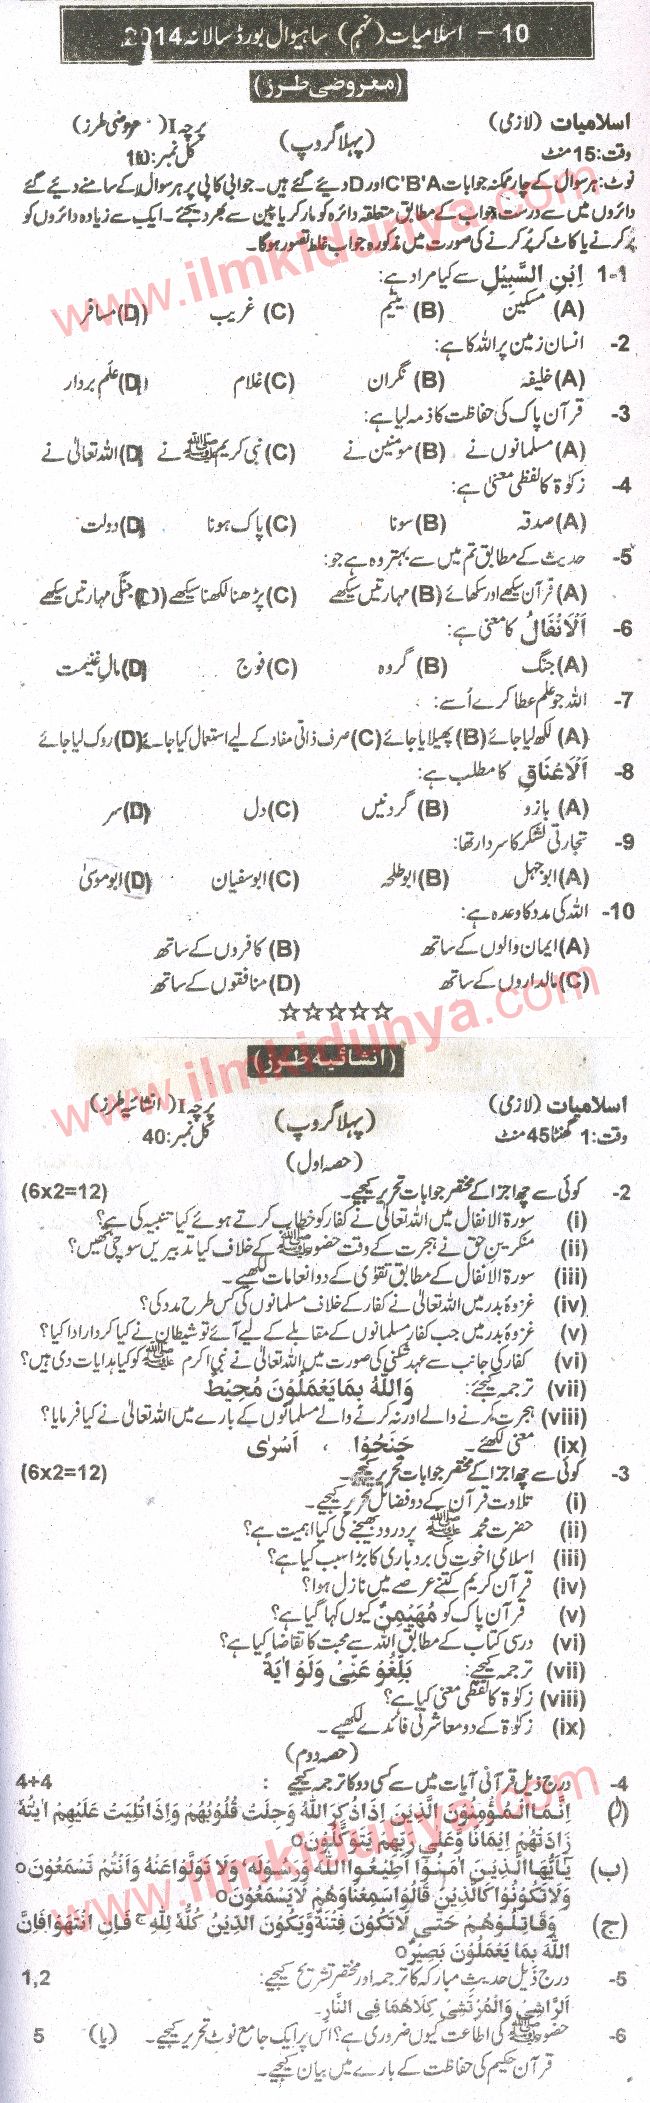 10 - اسلامیات (نہم) ساہیوال بورڈ سالانہ 2014
(معروضی طرز)
اسلامیات (لازمی) (پہلا گروپ) پرچہ I (معروضی طرز)
وقت: 15 منٹ کل نمبر: 10
نوٹ: ہر سوال کے چار ممکنہ جوابات C'B'A اور D دیے گئے ہیں۔ جوابی کاپی پر ہر سوال کے سامنے دیے گئے
دائروں میں سے درست جواب کے مطابق متعلقہ دائرہ کو مارکر یا پین سے بھر دیجئے۔ ایک سے زیادہ دائروں کو
پُر کرنے یا کاٹ کر پُر کرنے کی صورت میں مذکورہ جواب غلط تصور ہوگا۔
1-1 اِبْنِ السَّبِیْلِ سے کیا مراد ہے:
(A) مسکین (B) یتیم (C) غریب (D) مسافر
2- انسان زمین پر اللہ کا ہے:
(A) خلیفہ (B) نگران (C) غلام (D) علَم بردار
3- قرآن پاک کی حفاظت کا ذمہ لیا ہے:
(A) مسلمانوں نے (B) مومنین نے (C) نبی کریم ﷺ نے (D) اللہ تعالیٰ نے
4- زکوٰۃ کا لفظی معنی ہے:
(A) صدقہ (B) سونا (C) پاک ہونا (D) دولت
5- حدیث کے مطابق تم میں سے بہتر وہ ہے جو:
(A) قرآن سیکھے اور سکھائے (B) مہارتیں سیکھے (C) پڑھنا لکھنا سیکھے (D) جنگی مہارتیں سیکھے
6- اَلْاَنْفَالُ کا معنی ہے:
(A) جنگ (B) گروہ (C) فوج (D) مالِ غنیمت
7- اللہ جو علم عطا کرے اُسے:
(A) لکھ لیا جائے (B) پھیلایا جائے (C) صرف ذاتی مفاد کے لیے استعمال کیا جائے (D) روک لیا جائے
8- اَلْاَعْنَاقِ کا مطلب ہے:
(A) بازو (B) گردنیں (C) دل (D) سر
9- تجارتی لشکر کا سردار تھا:
(A) ابوجہل (B) ابوطلحہ (C) ابوسفیان (D) ابوموسیٰ
10- اللہ کی مدد کا وعدہ ہے:
(A) ایمان والوں کے ساتھ (B) کافروں کے ساتھ
(C) مالداروں کے ساتھ (D) منافقوں کے ساتھ
☆☆☆☆☆
(انشائیہ طرز)
اسلامیات (لازمی) (پہلا گروپ) پرچہ I (انشائیہ طرز)
وقت: 1 گھنٹا 45 منٹ کل نمبر: 40
(حصہ اول)
2- کوئی سے چھ اجزا کے مختصر جوابات تحریر کیجیے۔ (6x2=12)
(i) سورۃ الانفال میں اللہ تعالیٰ نے کفار کو خطاب کرتے ہوئے کیا تنبیہ کی ہے؟
(ii) منکرین حق نے ہجرت کے وقت حضور ﷺ کے خلاف کیا تدبیریں سوچی تھیں؟
(iii) سورۃ الانفال کے مطابق تقویٰ کے دو انعامات لکھیے۔
(iv) غزوۂ بدر میں اللہ تعالیٰ نے کفار کے خلاف مسلمانوں کی کس طرح مدد کی؟
(v) غزوۂ بدر میں جب کفار مسلمانوں کے مقابلے کے لیے آئے تو شیطان نے کیا کردار ادا کیا؟
(vi) کفار کی جانب سے عہد شکنی کی صورت میں اللہ تعالیٰ نے نبی اکرم ﷺ کو کیا ہدایات دی ہیں؟
(vii) ترجمہ کیجیے: وَاللّٰہُ بِمَا یَعْمَلُوْنَ مُحِیْطٌ
(viii) ہجرت کرنے والے اور نہ کرنے والے مسلمانوں کے بارے میں اللہ تعالیٰ نے کیا فرمایا؟
(ix) معنی لکھئے۔ جَنَحُوْا ، اَسْرٰی
3- کوئی سے چھ اجزا کے مختصر جوابات تحریر کیجیے۔ (6x2=12)
(i) تلاوت قرآن کے دو فضائل تحریر کیجیے۔
(ii) حضرت محمد ﷺ پر درود بھیجنے کی کیا اہمیت ہے؟
(iii) اسلامی اخوت کی بردباری کا بڑا سبب کیا ہے؟
(iv) قرآن کریم کتنے عرصے میں نازل ہوا؟
(v) قرآن پاک کو مُھَیْمِنٌ کیوں کہا گیا ہے؟
(vi) درسی کتاب کے مطابق اللہ سے محبت کا تقاضا کیا ہے؟
(vii) ترجمہ کیجیے: بَلِّغُوْ عَنِّیْ وَلَوْ اٰیَةً
(viii) زکوٰۃ کا لفظی معنی کیا ہے؟
(ix) زکوٰۃ کے دو معاشرتی فائدے لکھیے۔
(حصہ دوم)
4- درج ذیل قرآنی آیات میں سے کسی دو کا ترجمہ کیجیے: 4+4
(ا) اِنَّمَا الْمُؤْمِنُوْنَ الَّذِیْنَ اِذَا ذُکِرَ اللّٰہُ وَجِلَتْ قُلُوْبُھُمْ وَاِذَا تُلِیَتْ عَلَیْھِمْ اٰیٰتُہٗ
زَادَتْھُمْ اِیْمَانًا وَّعَلٰی رَبِّھِمْ یَتَوَکَّلُوْنَ○
(ب) یٰٓاَیُّھَا الَّذِیْنَ اٰمَنُوْٓا اَطِیْعُوا اللّٰہَ وَرَسُوْلَہٗ وَلَا تَوَلَّوْا عَنْہُ وَاَنْتُمْ تَسْمَعُوْنَ○
وَلَا تَکُوْنُوْا کَالَّذِیْنَ قَالُوْا سَمِعْنَا وَھُمْ لَا یَسْمَعُوْنَ○
(ج) وَقَاتِلُوْھُمْ حَتّٰی لَا تَکُوْنَ فِتْنَةٌ وَّیَکُوْنَ الدِّیْنُ کُلُّہٗ لِلّٰہِ ۚ فَاِنِ انْتَھَوْا فَاِنَّ
اللّٰہَ بِمَا یَعْمَلُوْنَ بَصِیْرٌ○
5- درج ذیل حدیث مبارکہ کا ترجمہ اور مختصر تشریح کیجیے: 1,2
اَلرَّاشِیْ وَالْمُرْتَشِیْ کِلَاھُمَا فِی النَّارِ۔
6- حضور ﷺ کی اطاعت کیوں ضروری ہے؟ اس پر ایک جامع نوٹ تحریر کیجیے۔ (یا) 5
قرآن حکیم کی حفاظت کے بارے میں بیان کیجیے۔
www.ilmkidunya.com
www.ilmkidunya.com
www.ilmkidunya.com